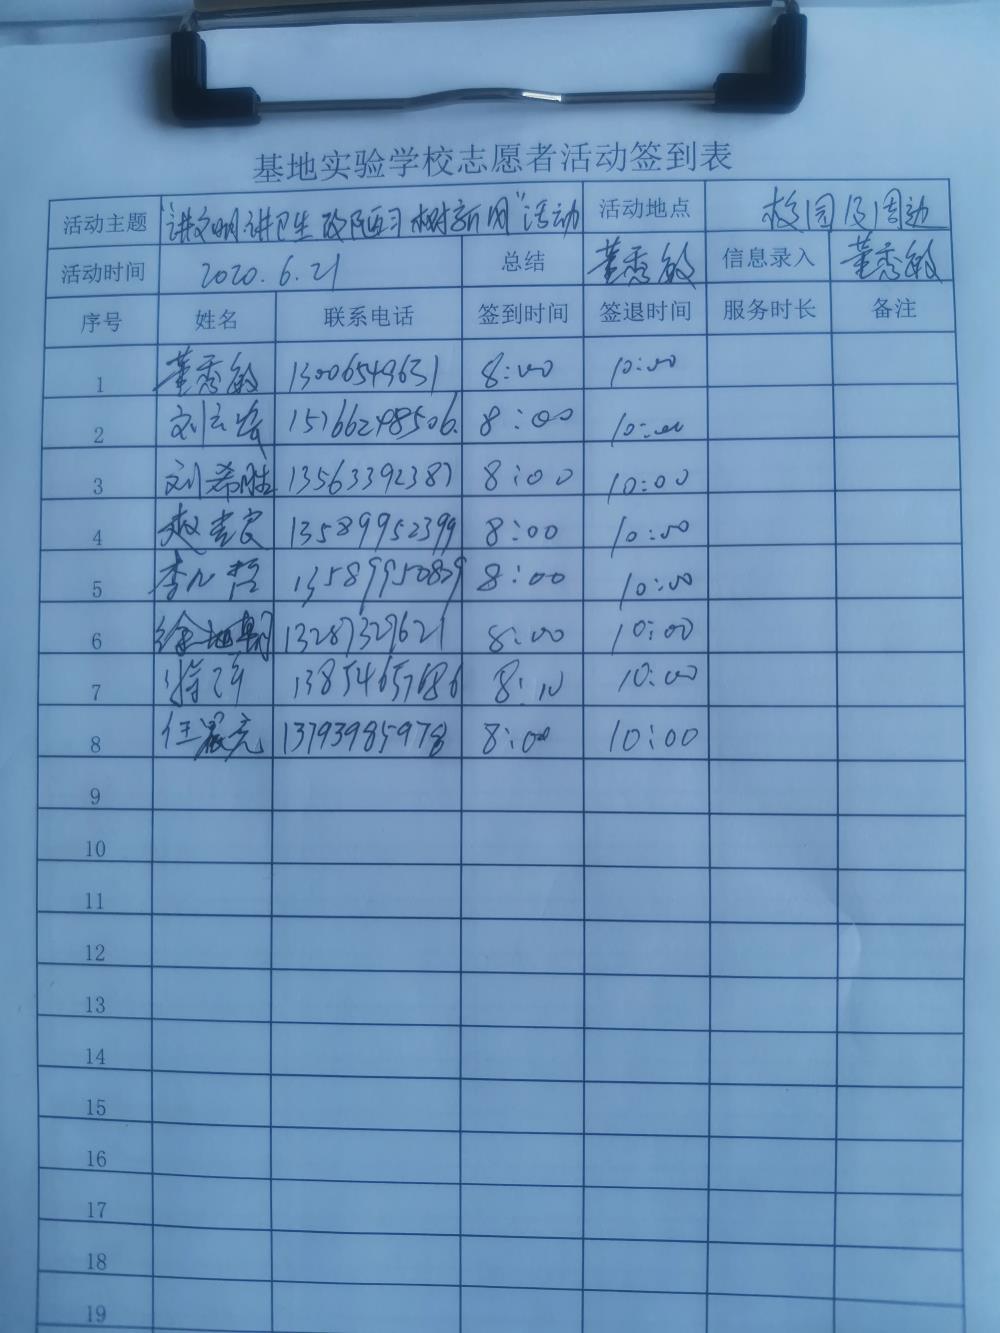 基地实验学校志愿者活动签到表
活动主题 "讲文明讲卫生 改陋习 树新风"活动 活动地点 校园及周边
活动时间 2020.6.21 总结 董秀敏 信息录入 董秀敏
序号 姓名 联系电话 签到时间 签退时间 服务时长 备注
1 董秀敏 13006549631 8:00 10:00
2 15766248506. 8:00 10:00
3 刘希胜 13563392387 8:00 10:00
4 13589952399 8:00 10:00
5 13589950839 8:00 10:00
6 13287327621 8:00 10:00
7 13854657686 8:10 10:00
8 13793985978 8:00 10:00
9
10
11
12
13
14
15
16
17
18
19